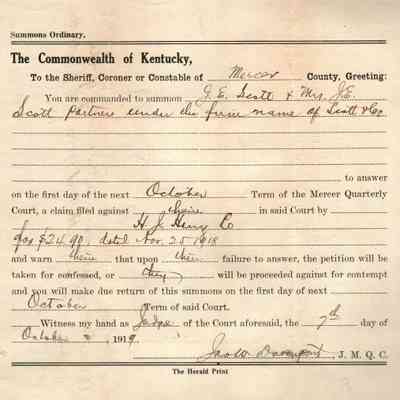 Summons Ordinary.
The Commonwealth of Kentucky,
To the Sheriff, Coroner or Constable of Mercer County, Greeting:
You are commanded to summon J. E. Scott & Mrs. J. E.
Scott Partners under the firm name of Scott & Co
to answer
on the first day of the next October Term of the Mercer Quarterly
Court, a claim filed against in said Court by
H. J. Henry Co
for $24.90, dated Nov. 25 1918
and warn them that upon their failure to answer, the petition will be
taken for confessed, or they will be proceeded against for contempt
and you will make due return of this summons on the first day of next
October Term of said Court.
Witness my hand as Judge of the Court aforesaid, the 7th day of
October 1919.
Davenport, J. M. Q. C.
The Herald Print